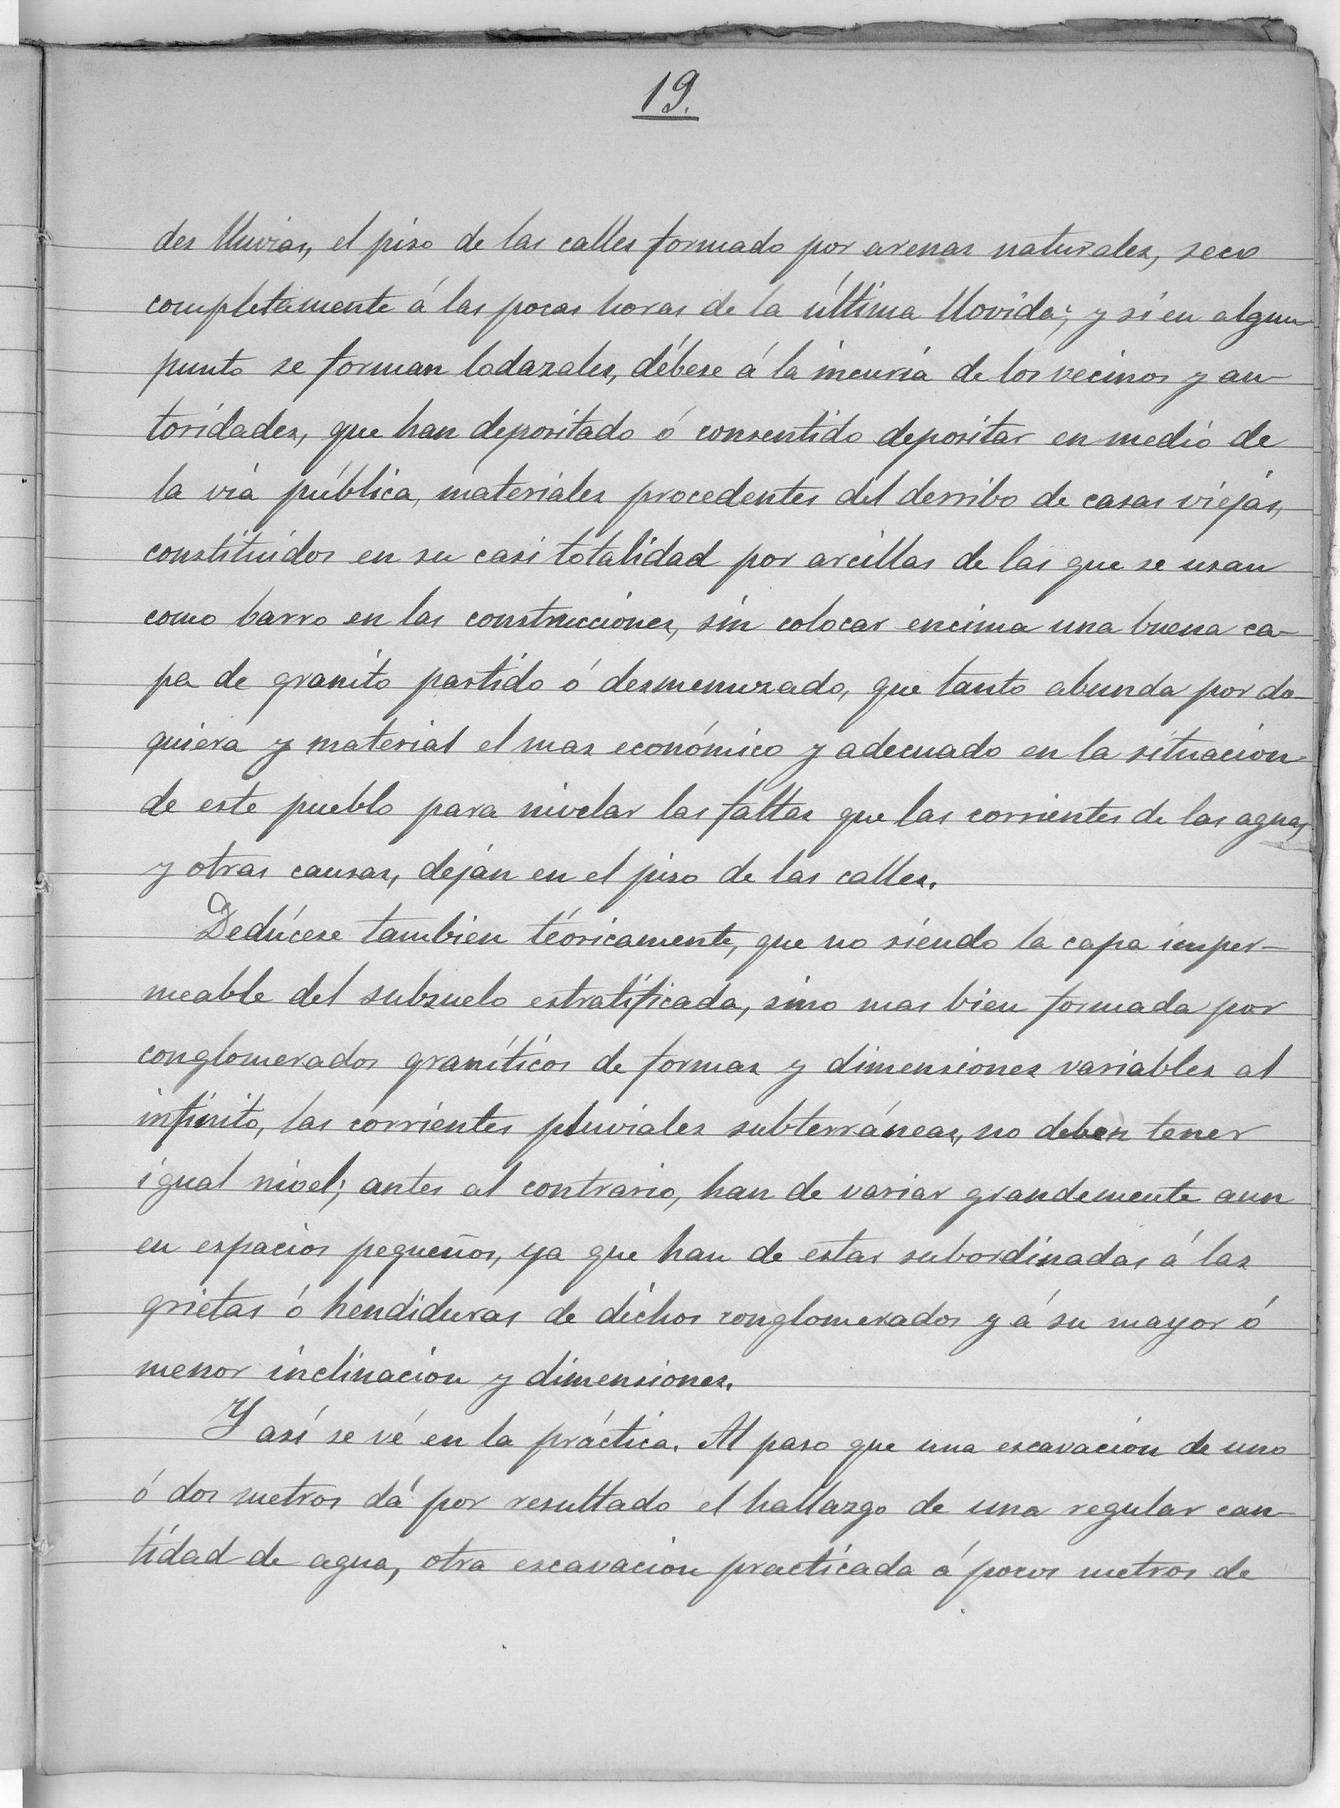 19.
des lluvias, el piso de las calles formado por arenas naturales, seco
completamente á las pocas horas de la última llovida; y si en algun
punto se forman lodazales, débese á la incuria de los vecinos y au-
toridades, que han depositado ó consentido depositar en medio de
la via pública, materiales procedentes del derribo de casas viejas,
constituidos en su casi totalidad por arcillas de las que se usan
como barro en las construcciones, sin colocar encima una buena ca-
pa de granito partido ó desmenuzado, que tanto abunda por do-
quiera y material el mas económico y adecuado en la situacion
de este pueblo para nivelar las faltas que las corrientes de las aguas
y otras causas, deján en el piso de las calles.
Dedúcese tambien teóricamente, que no siendo la capa imper-
meable del subsuelo estratificada, sino mas bien formada por
conglomerados graníticos de formas y dimensiones variables al
infinito, las corrientes pluviales subterráneas, no deben tener
igual nivel; antes al contrario, han de variar grandemente aun
en espacios pequeños, ya que han de estar subordinadas á las
grietas ó hendiduras de dichos conglomerados y á su mayor ó
menor inclinacion y dimensiones.
Y así se vé en la práctica. Al paso que una escavacion de uno
ó dos metros dá por resultado el hallazgo de una regular can-
tidad de agua, otra escavacion practicada á pocos metros de